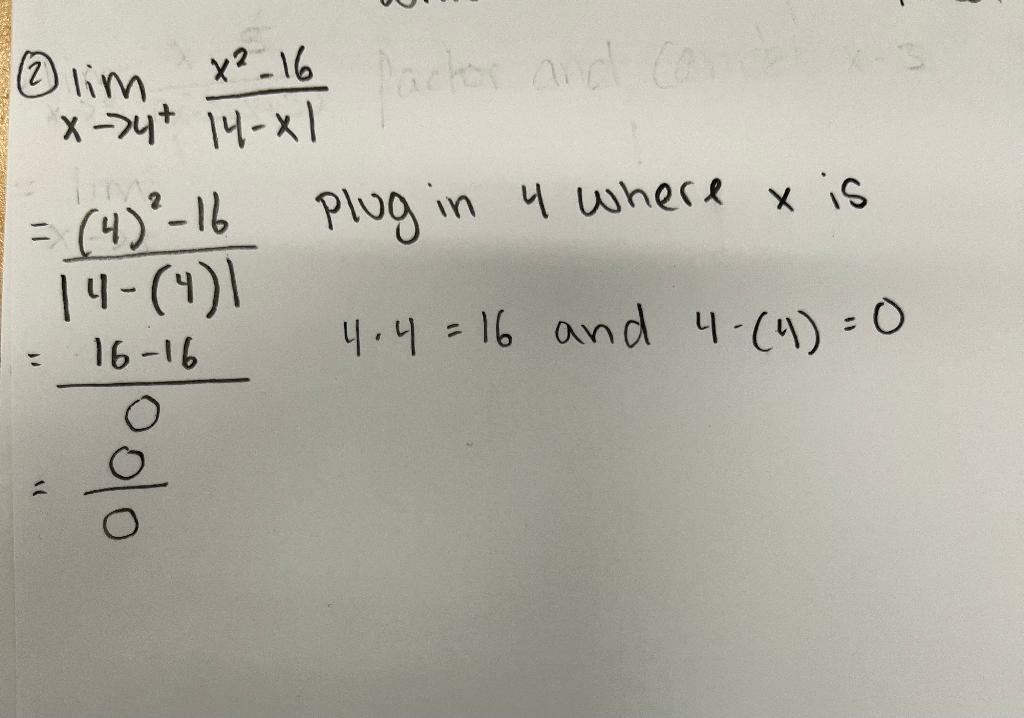 ② lim x→4⁺ x²-16 / |4-x|
= (4)²-16 / |4-(4)| plug in 4 where x is
= 16-16 / 0 4·4 = 16 and 4-(4) = 0
= 0 / 0